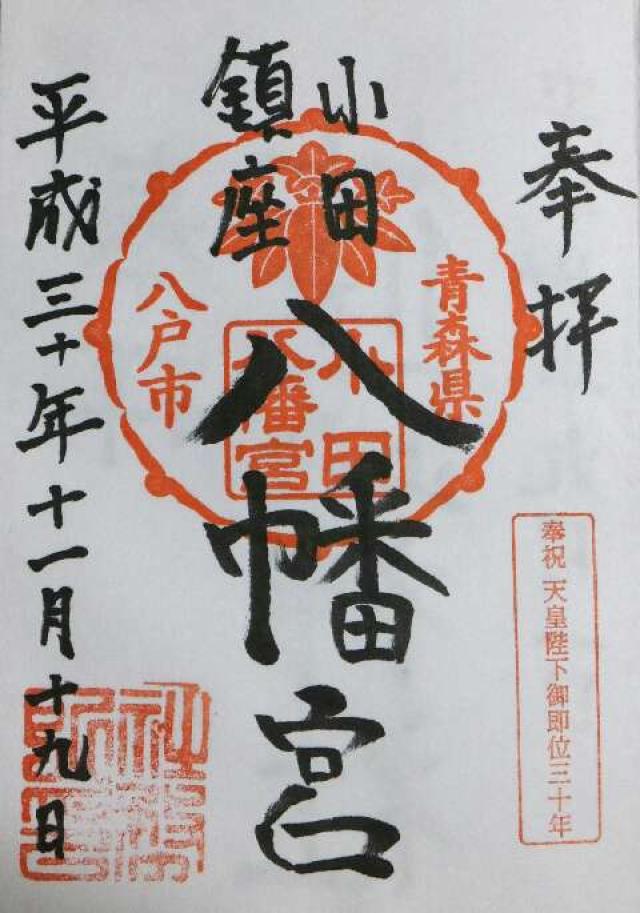 奉拝
奉祝 天皇陛下御即位三十年
青森県
小田
鎮座
八幡宮
小田
八幡宮
八戸市
平成三十年十一月十九日
社務所